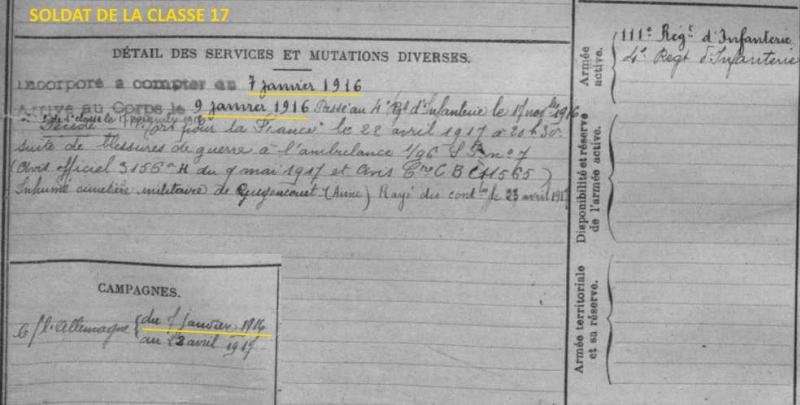 SOLDAT DE LA CLASSE 17
DÉTAIL DES SERVICES ET MUTATIONS DIVERSES.
Incorporé à compter du 7 janvier 1916
Arrivé au Corps le 9 janvier 1916 Passé au 4e Rgt d'Infanterie le 17 nov bre 1916
Mort pour la France le 22 avril 1917 à 20h30
suite de blessures de guerre à l'ambulance 1/96 S P no 7
(Avis officiel 3156 H du 9 mai 1917 et avis C B 11565)
Inhumé cimetière militaire de (Aisne) Rayé des cont les le 23 avril 1917
CAMPAGNES.
C/ l'Allemagne { du 7 janvier 1916
au 22 avril 1917
Armée active.
111e Régt d'Infanterie
4e Regt d'Infanterie
Disponibilité et réserve de l'armée active.
Armée territoriale et sa réserve.